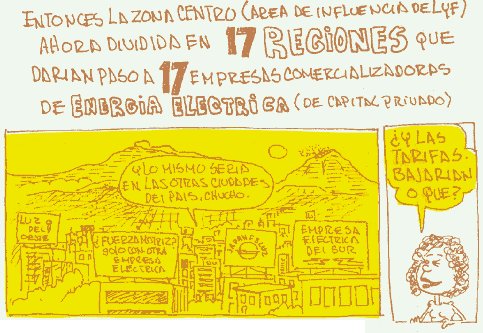 ENTONCES LA ZONA CENTRO (AREA DE INFLUENCIA DE LyF)
AHORA DIVIDIDA EN 17 REGIONES QUE
DARIAN PASO A 17 EMPRESAS COMERCIALIZADORAS
DE ENERGIA ELECTRICA (DE CAPITAL PRIVADO)
Y LO MISMO SERIA
EN LAS OTRAS CIUDADES
DEL PAIS, CHUCHO.
¿Y LAS
TARIFAS.
BAJARIAN
O QUE?
LUZ
DEL
OESTE
FUERZA MOTRIZ
SOLO CON OTRA
EMPRESA
ELECTRICA
EMPRESA
ELECTRICA
DEL SUR